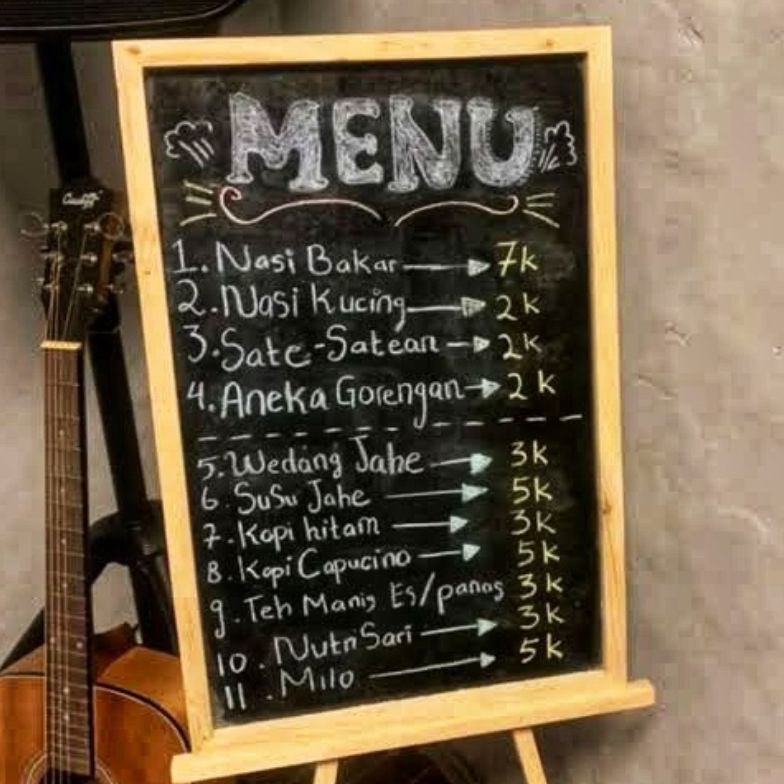 MENU
1. Nasi Bakar 7k
2. Nasi Kucing 2k
3. Sate-Satean 2k
4. Aneka Gorengan 2k
5. Wedang Jahe 3k
6. SuSu Jahe 5k
7. Kopi hitam 3k
8. Kopi Capucino 5k
9. Teh Manis Es/panas 3k
10. Nutri Sari 3k
11. Milo 5k